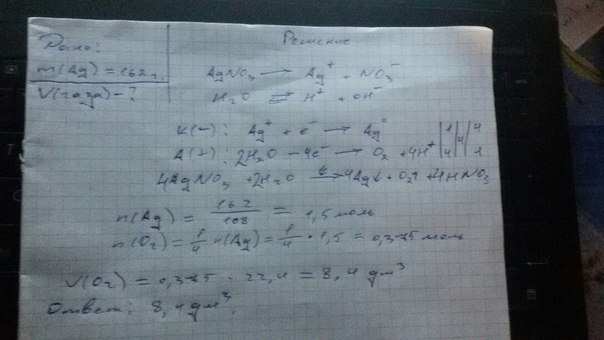 Дано:
m(Ag) = 162 г.
V(газа) - ?
Решение
AgNO₃ → Ag⁺ + NO₃⁻
H₂O ⇄ H⁺ + OH⁻
K(-): Ag⁺ + e⁻ → Ag⁰ | 1 | 4 | 4
A(+): 2H₂O - 4e⁻ → O₂ + 4H⁺ | 4 | | 1
4AgNO₃ + 2H₂O → 4Ag↓ + O₂↑ + 4HNO₃
n(Ag) = 162/108 = 1,5 моль
n(O₂) = 1/4 n(Ag) = 1/4 · 1,5 = 0,375 моль
V(O₂) = 0,375 · 22,4 = 8,4 дм³
Ответ: 8,4 дм³.